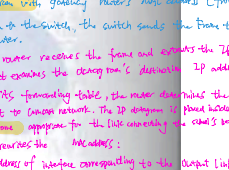 with gateway router's MAC address (from
to the switch, the switch sends the frame t
router.
router receives the frame and extracts the IP
It examines the datagram's destination IP addr
its forwarding table, the router determines the
to comcast network. The IP datagram is placed inside
appropriate for the link connecting the
MAC address:
address of interface corresponding to the output link